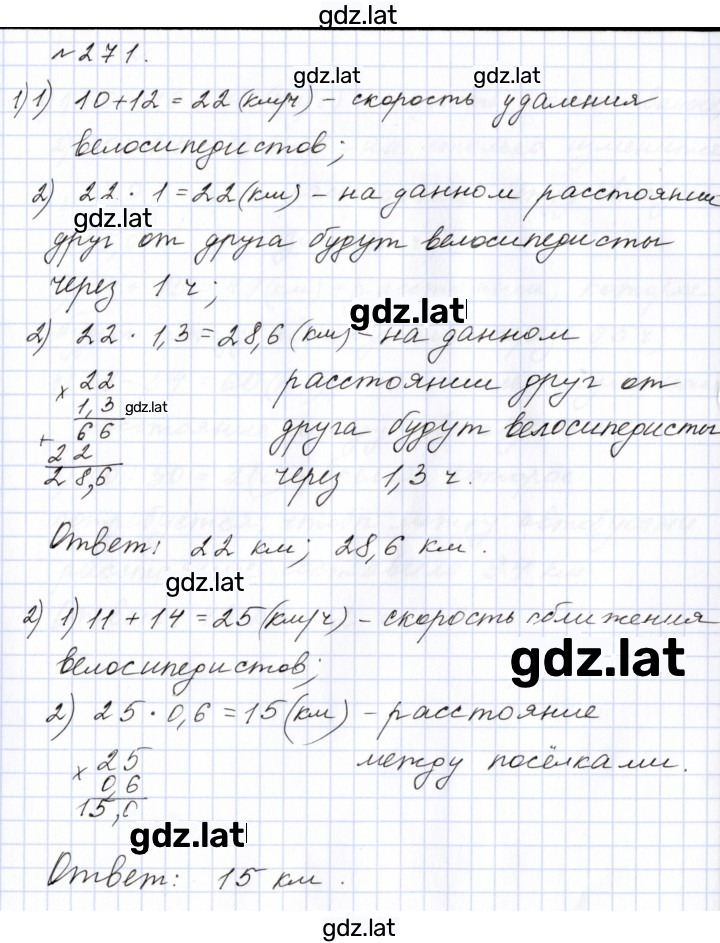 gdz.lat
№271.
gdz.lat gdz.lat
1) 1) 10+12 = 22 (км/ч) - скорость удаления
велосипедистов;
2) 22 · 1 = 22 (км) - на данном расстоянии
gdz.lat
друг от друга будут велосипедисты
через 1 ч;
gdz.lat
2) 22 · 1,3 = 28,6 (км) - на данном
× 22 расстоянии друг от
1,3 gdz.lat
+ 66 друга будут велосипедисты
22
28,6 через 1,3 ч.
Ответ: 22 км; 28,6 км.
gdz.lat
2) 1) 11 + 14 = 25 (км/ч) - скорость сближения
gdz.lat
велосипедистов;
2) 25 · 0,6 = 15 (км) - расстояние
× 25 между посёлками.
0,6
15,0
gdz.lat
Ответ: 15 км.
gdz.lat